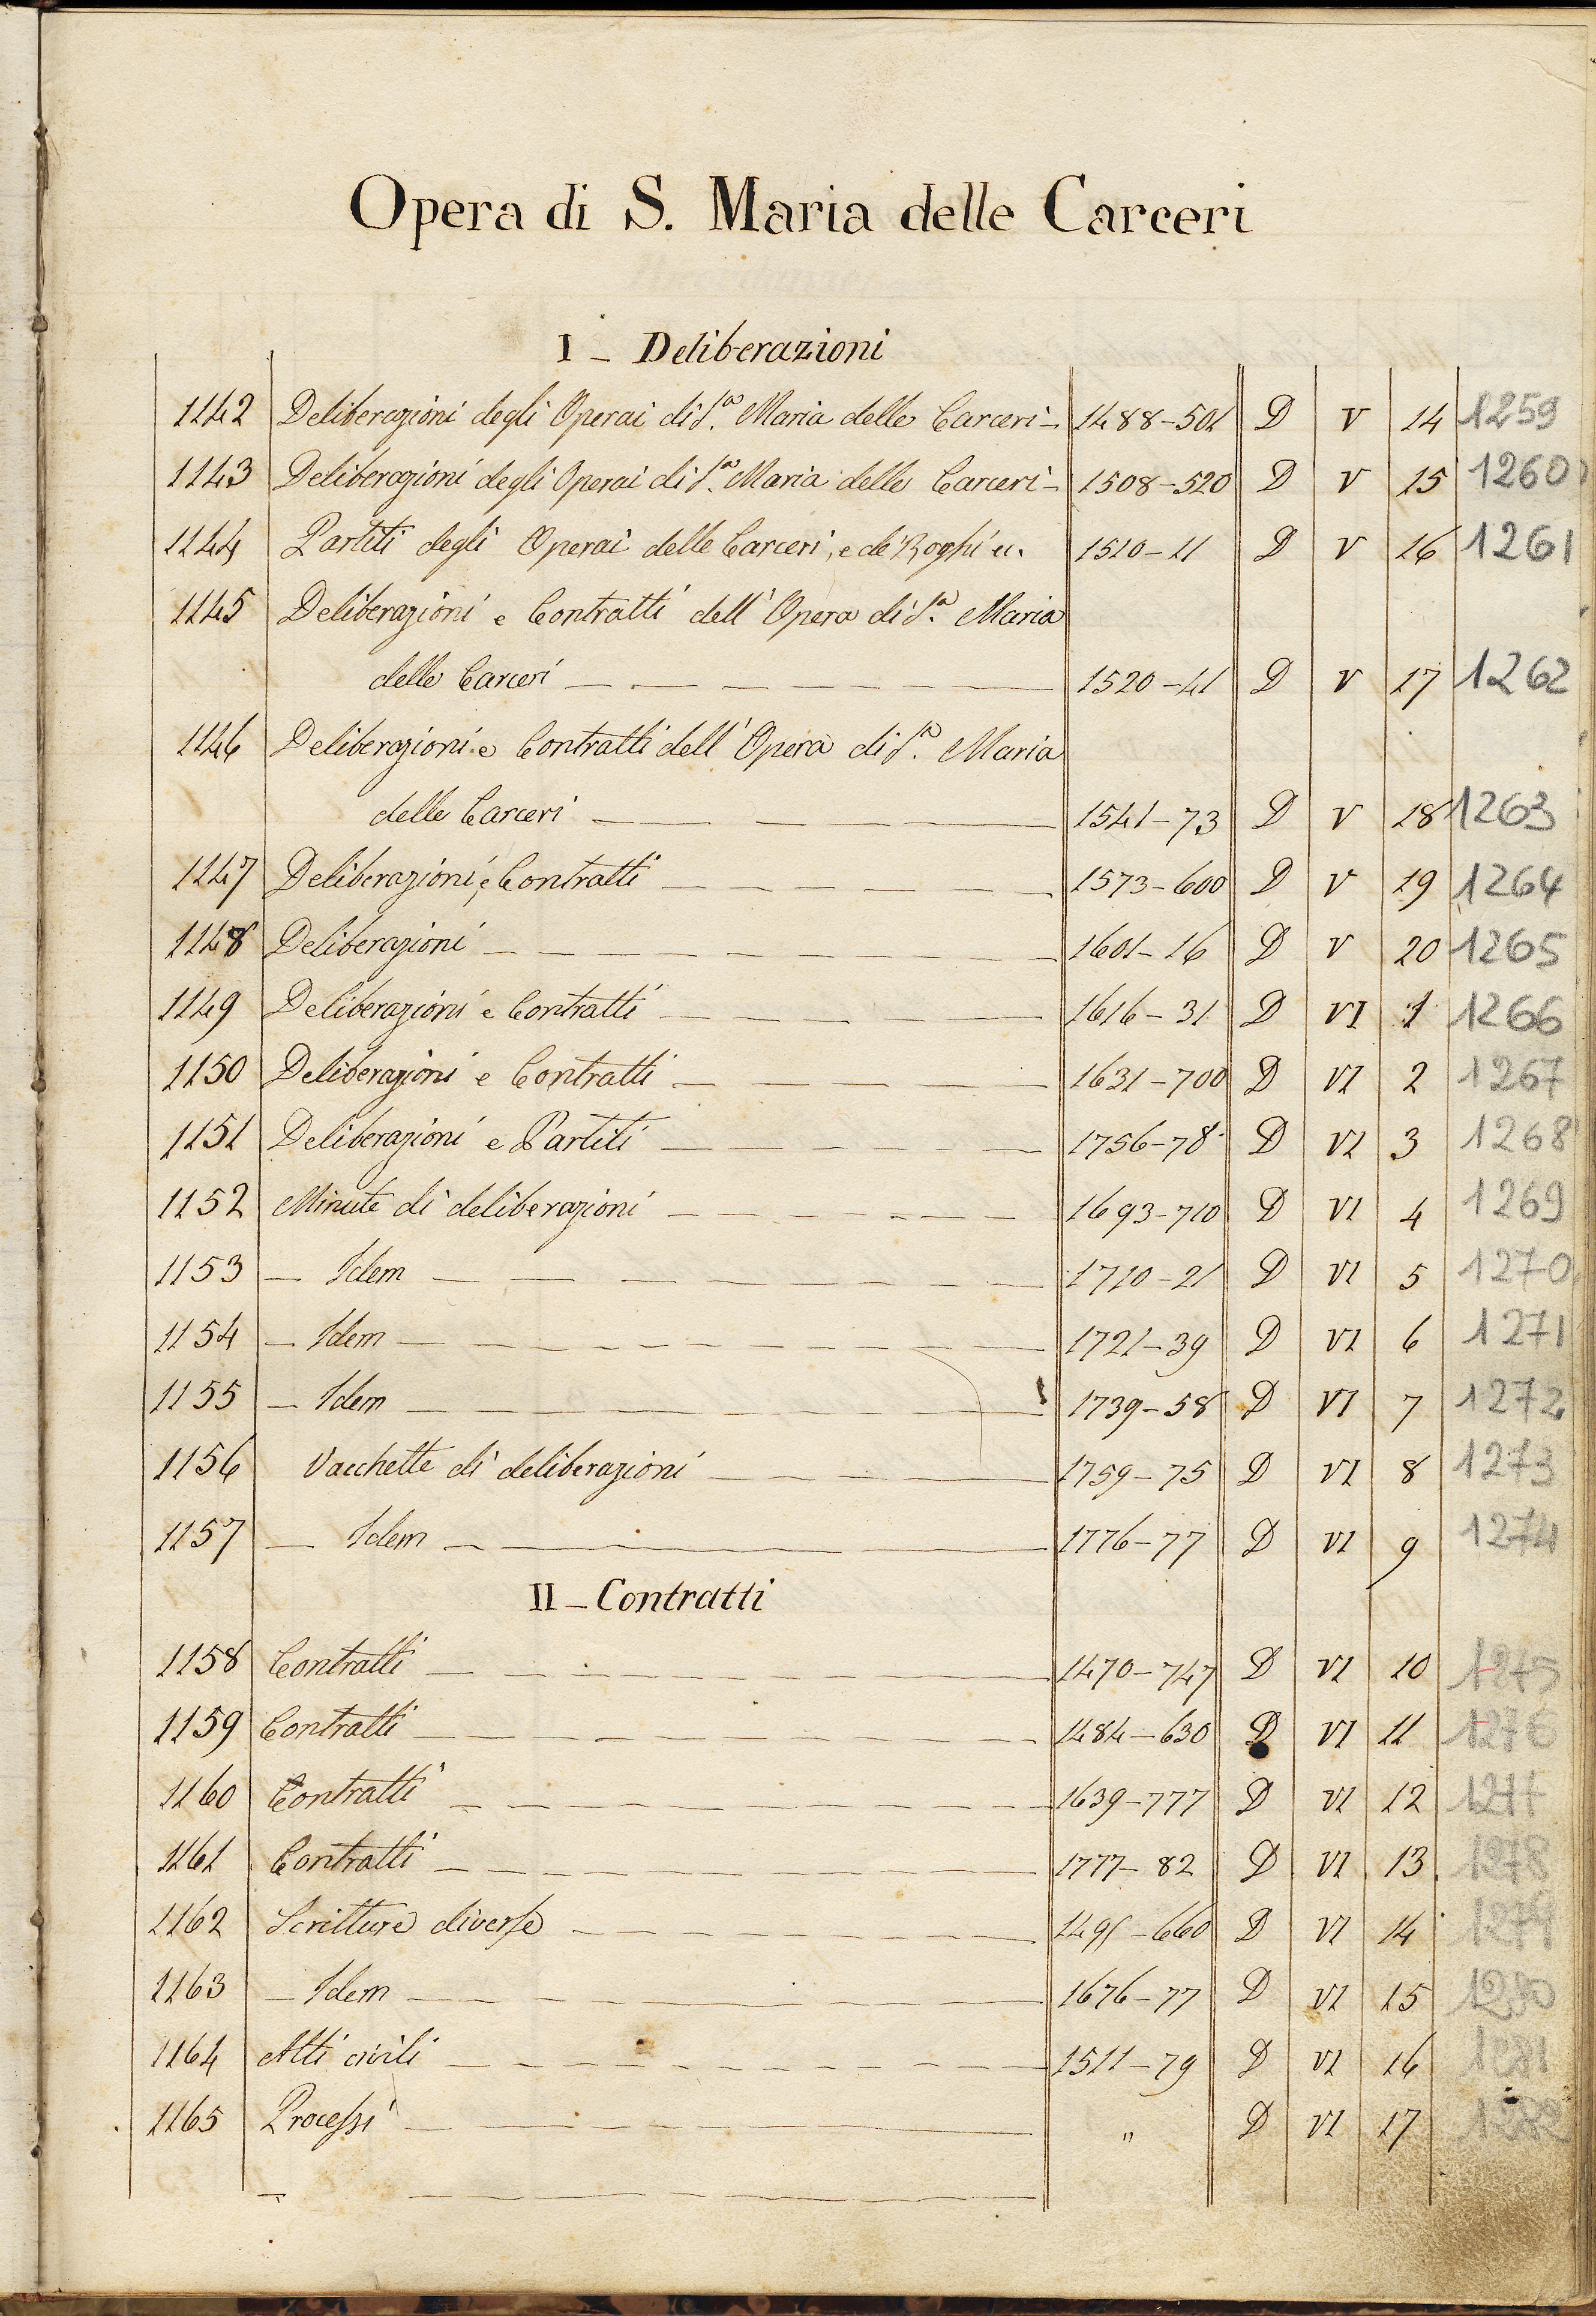 Opera di S. Maria delle Carceri
I - Deliberazioni
1142 Deliberazioni degli Operai di S.ª Maria delle Carceri - 1488-501 D V 14 1259
1143 Deliberazioni degli Operai di S.ª Maria delle Carceri - 1508-520 D V 15 1260
1144 Partiti degli Operai delle Carceri, e de' Roghi ec. 1510-11 D V 16 1261
1145 Deliberazioni e Contratti dell' Opera di S.ª Maria
delle Carceri 1520-41 D V 17 1262
1146 Deliberazioni e Contratti dell' Opera di S.ª Maria
delle Carceri 1541-73 D V 18 1263
1147 Deliberazioni, e Contratti 1573-600 D V 19 1264
1148 Deliberazioni 1601-16 D V 20 1265
1149 Deliberazioni e Contratti 1616-31 D VI 1 1266
1150 Deliberazioni e Contratti 1631-700 D VI 2 1267
1151 Deliberazioni e Partiti 1756-78 D VI 3 1268
1152 Minute di deliberazioni 1693-710 D VI 4 1269
1153 - Idem 1710-21 D VI 5 1270
1154 - Idem 1721-39 D VI 6 1271
1155 - Idem 1739-58 D VI 7 1272
1156 Vacchette di deliberazioni 1759-75 D VI 8 1273
1157 - Idem 1776-77 D VI 9 1274
II - Contratti
1158 Contratti 1470-747 D VI 10 1275
1159 Contratti 1484-630 D VI 11 1276
1160 Contratti 1639-777 D VI 12 1277
1161 Contratti 1777-82 D VI 13 1278
1162 Scritture diverse -660 D VI 14 1279
1163 - Idem 1676-77 D VI 15 1280
1164 Atti civili 1511-79 D VI 16 1281
1165 Processi " D VI 17 1282